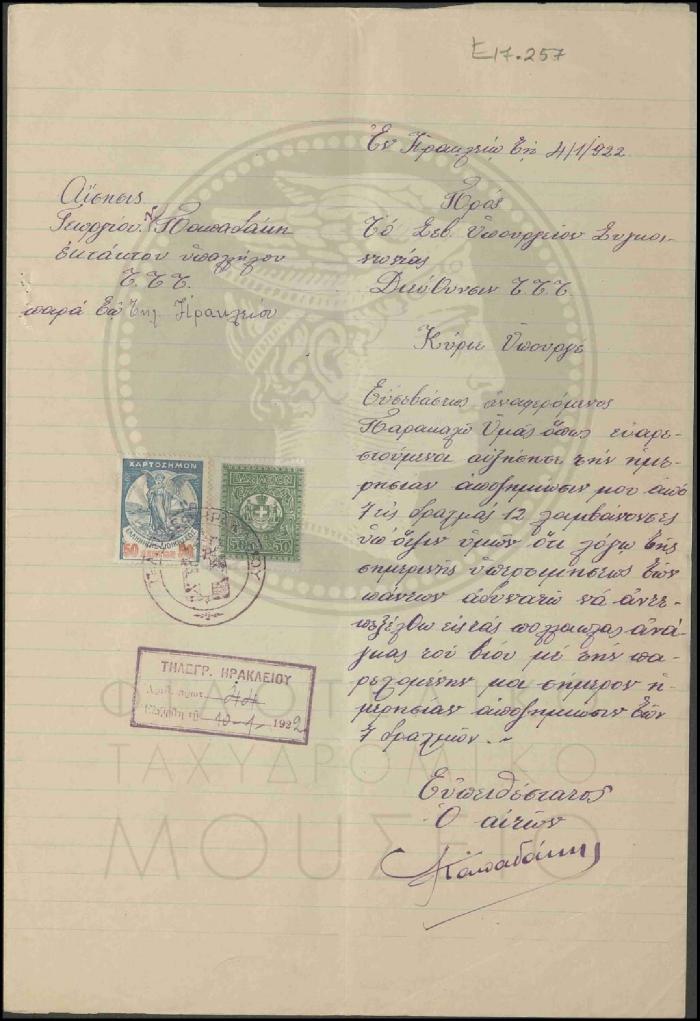 Ε17.257
Ἐν Ἡρακλείῳ τῇ 4/1/922
Αἴτησις
Γεωργίου Ν. Παπαδάκη
ἐκτάκτου ὑπαλλήλου
Τ.Τ.Τ.
παρὰ τῷ Τηλ. Ἡρακλείου
Πρός
Τὸ Σεβ. Ὑπουργεῖον Συγκοι-
νωνίας
Διεύθυνσιν Τ.Τ.Τ.
Κύριε Ὑπουργέ
Εὐσεβάστως ἀναφερόμενος
Παρακαλῶ Ὑμᾶς ὅπως εὐαρε-
στούμενοι αὐξήσητε τὴν ἡμε-
ρησίαν ἀποζημίωσιν μου ἀπὸ
7 εἰς δραχμάς 12 λαμβάνοντες
ὑπ' ὄψιν ὑμῶν ὅτι λόγῳ τῆς
σημερινῆς ὑπερτιμήσεως τῶν
πάντων ἀδυνατῶ νὰ ἀντε-
πεξέλθω εἰς τὰς πολλαπλας ἀνάγ-
κας τοῦ βίου μὲ τὴν πα-
ρεχομένην μοι σήμερον ἡ-
μερησίαν ἀποζημίωσιν τῶν
7 δραχμῶν.
Εὐπειθέστατος
Ὁ αἰτῶν
Παπαδάκης
ΧΑΡΤΟΣΗΜΟΝ
50 50
50 50
ΤΗΛΕΓΡ. ΗΡΑΚΛΕΙΟΥ
Ἀριθ. πρωτ. 44
Ἐλήφθη τῇ 10-1- 1922
ΦΙΛΟΤΕΛΙΚΟ
ΤΑΧΥΔΡΟΜΙΚΟ
ΜΟΥΣΕΙΟ